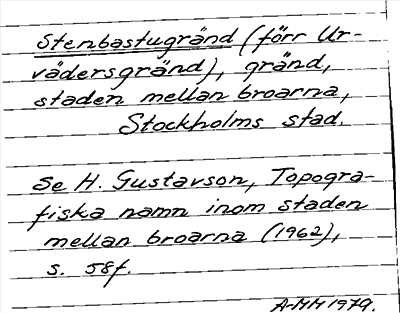 Stenbastugränd (förr Ur-
vädersgränd), gränd,
staden mellan broarna,
Stockholms stad.
Se H. Gustavson, Topogra-
fiska namn inom staden
mellan broarna (1962),
s. 58f.
A-MM 1979.